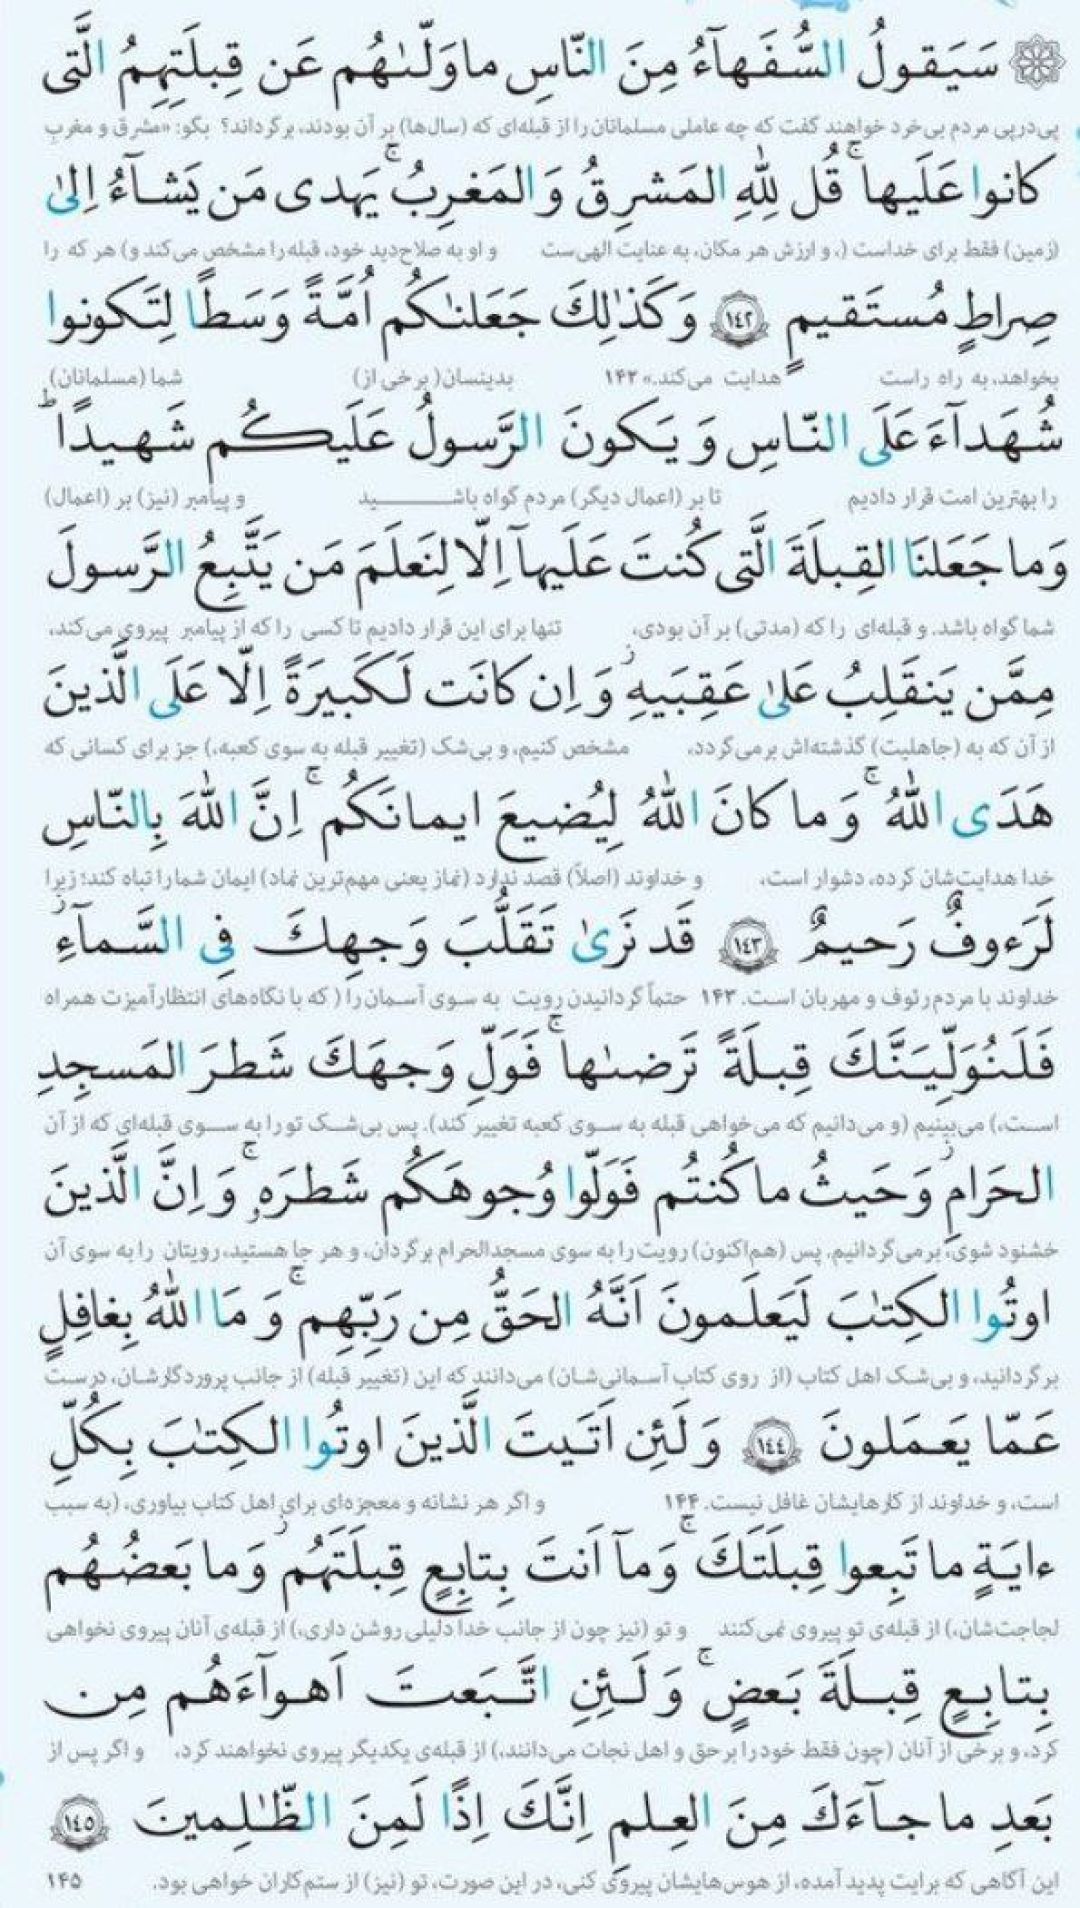 سَيَقولُ السُّفَهآءُ مِنَ النّاسِ ماوَلّىٰهُم عَن قِبلَتِهِمُ الَّتى
پی‌درپی مردم بی‌خرد خواهند گفت که چه عاملی مسلمانان را از قبله‌ای که (سال‌ها) بر آن بودند، برگرداند؟ بگو: «مشرق و مغربِ
كانوا عَلَيها ۚ قُل لِلّٰهِ المَشرِقُ وَ المَغرِبُ ۚ يَهدى مَن يَشآءُ اِلىٰ
(زمین) فقط برای خداست (، و ارزش هر مکان، به عنایت الهی‌ست و او به صلاح‌دید خود، قبله را مشخص می‌کند و) هر که را
صِراطٍ مُستَقيمٍ ﴿١٤٢﴾ وَ كَذٰلِكَ جَعَلنٰكُم اُمَّةً وَسَطًا لِتَكونوا
بخواهد، به راه راست هدایت می‌کند.» ۱۴۲ بدینسان( برخی از) شما (مسلمانان)
شُهَدآءَ عَلَى النّاسِ وَ يَكونَ الرَّسولُ عَلَيكُم شَهيدًا ؕ
را بهترین امت قرار دادیم تا بر (اعمال دیگر) مردم گواه باشـــــید و پیامبر (نیز) بر (اعمال)
وَما جَعَلنَا القِبلَةَ الَّتى كُنتَ عَلَيهآ اِلّا لِنَعلَمَ مَن يَتَّبِعُ الرَّسولَ
شما گواه باشد. و قبله‌ای را که (مدتی) بر آن بودی، تنها برای این قرار دادیم تا کسی را که از پیامبر پیروی می‌کند،
مِمَّن يَنقَلِبُ عَلىٰ عَقِبَيهِ ۯ وَ اِن كانَت لَكَبيرَةً اِلّا عَلَى الَّذينَ
از آن که به (جاهلیت) گذشته‌اش برمی‌گردد، مشخص کنیم، و بی‌شک (تغییر قبله به سوی کعبه،) جز برای کسانی که
هَدَى اللّٰهُ ۚ وَ ما كانَ اللّٰهُ لِيُضيعَ ايمانَكُم ۚ اِنَّ اللّٰهَ بِالنّاسِ
خدا هدایت‌شان کرده، دشوار است، و خداوند (اصلاً) قصد ندارد (نماز یعنی مهم‌ترین نماد) ایمان شما را تباه کند؛ زیرا
لَرَءوفٌ رَحيمٌ ﴿١٤٣﴾ قَد نَرىٰ تَقَلُّبَ وَجهِكَ فِى السَّمآءِ ۯ
خداوند با مردم رئوف و مهربان است. ۱۴۳ حتماً گردانیدن رویت به سوی آسمان را ( که با نگاه‌های انتظارآمیزت همراه
فَلَنُوَلِّيَنَّكَ قِبلَةً تَرضىٰها ۚ فَوَلِّ وَجهَكَ شَطرَ المَسجِدِ
است،) می‌بینیم (و می‌دانیم که می‌خواهی قبله به سوی کعبه تغییر کند). پس بی‌شک تو را به سوی قبله‌ای که از آن
الحَرامِ ۯ وَ حَيثُ ما كُنتُم فَوَلّوا وُجوهَكُم شَطرَهٖ ۚ وَ اِنَّ الَّذينَ
خشنود شوی، برمی‌گردانیم. پس (هم‌اکنون) رویت را به سوی مسجدالحرام برگردان، و هر جا هستید، رویتان را به سوی آن
اوتُوا الكِتٰبَ لَيَعلَمونَ اَنَّهُ الحَقُّ مِن رَبِّهِم ۚ وَ مَا اللّٰهُ بِغافِلٍ
برگردانید، و بی‌شک اهل کتاب (از روی کتاب آسمانی‌شان) می‌دانند که این (تغییر قبله) از جانب پروردگارشان، درست
عَمّا يَعمَلونَ ﴿١٤٤﴾ وَ لَئِن اَتَيتَ الَّذينَ اوتُوا الكِتٰبَ بِكُلِّ
است، و خداوند از کارهایشان غافل نیست. ۱۴۴ و اگر هر نشانه و معجزه‌ای برای اهل کتاب بیاوری، (به سبب
ءايَةٍ ما تَبِعوا قِبلَتَكَ ۚ وَمآ اَنتَ بِتابِعٍ قِبلَتَهُم ۯ وَ ما بَعضُهُم
لجاجت‌شان،) از قبله‌ی تو پیروی نمی‌کنند و تو (نیز چون از جانب خدا دلیلی روشن داری،) از قبله‌ی آنان پیروی نخواهی
بِتابِعٍ قِبلَةَ بَعضٍ ۚ وَ لَئِنِ اتَّبَعتَ اَهوآءَهُم مِن
کرد، و برخی از آنان (چون فقط خود را بر حق و اهل نجات می‌دانند،) از قبله‌ی یکدیگر پیروی نخواهند کرد، و اگر پس از
بَعدِ ما جآءَكَ مِنَ العِلمِ اِنَّكَ اِذًا لَمِنَ الظّٰلِمينَ ﴿١٤٥﴾
این آگاهی که برایت پدید آمده، از هوس‌هایشان پیروی کنی، در این صورت، تو (نیز) از ستم‌کاران خواهی بود. ۱۴۵